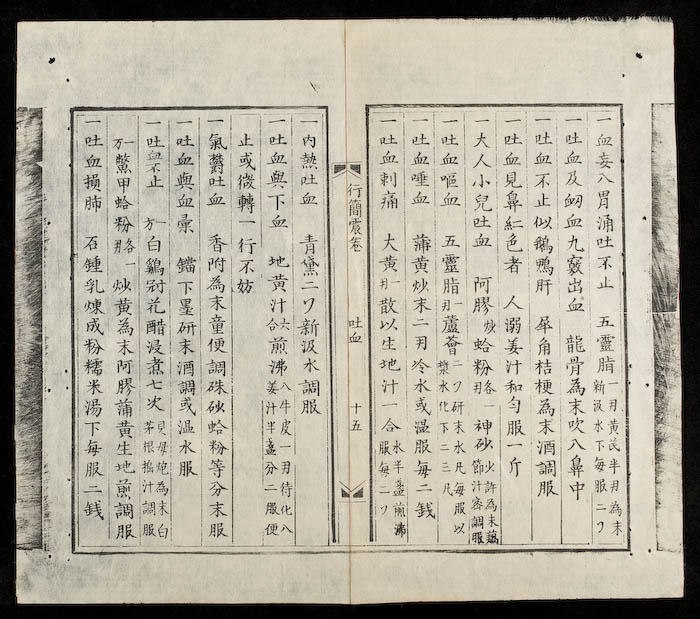 一血妄八胃涌吐不止　五灵脂一月黄芪半月為末新汲水下每服二ワ
一吐血及衂血九竅出血　龍骨為末吹八鼻中
一吐血不止似鵝鴨肝　犀角桔梗為末酒調服
一吐血見鼻紅色者　人溺姜汁和匀服一斤
一大人小兒吐血　阿膠炒蛤粉各一月神砂少許為末藕節汁蜜調服
一吐血嘔血　五靈脂一月蘆薈二ワ研末水凡每服以漿水化下二三凡
一吐血唾血　蒲黄炒末二月冷水或温服每二錢
一吐血刺痛　大黄一月散以生地汁一合水半盞煎沸服每二ワ
行簡震卷　吐血　十五
一内熱吐血　青黛二ワ新汲水調服
一吐血與下血　地黄汁六合煎沸八牛皮一月待化八姜汁半盞分二服便
止或微轉一行不妨
一氣欝吐血　香附為末童便調硃砂蛤粉等分末服
一吐血與血彙　鐺下墨研末酒調或温水服
一吐血不止　一方白鷄冠花醋浸煮七次貝母炮為末白茅根搗汁調服
一方鱉甲蛤粉各一月炒黄為末阿膠蒲黄生地煎調服
一吐血損肺　石鍾乳煉成粉糯米湯下每服二錢